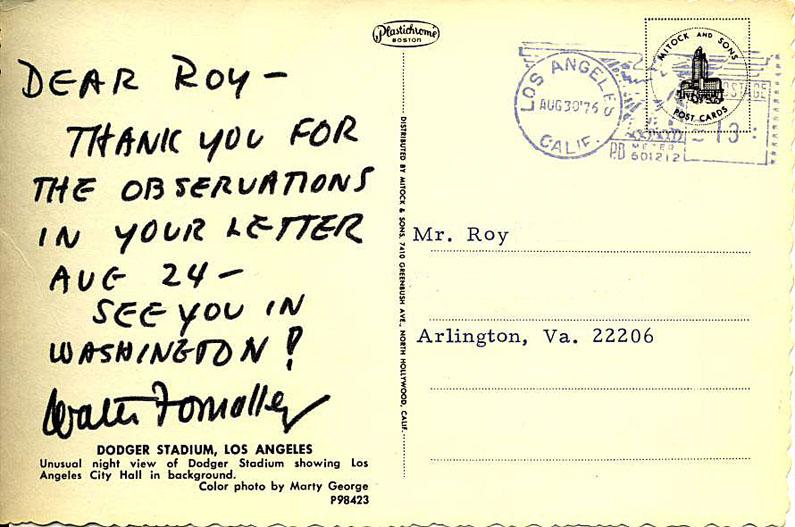 DEAR ROY-
THANK YOU FOR
THE OBSERVATIONS
IN YOUR LETTER
AUG 24-
SEE YOU IN
WASHINGTON!
Walter F O'Malley
DODGER STADIUM, LOS ANGELES
Unusual night view of Dodger Stadium showing Los
Angeles City Hall in background.
Color photo by Marty George
P98423
Plastichrome
BOSTON
DISTRIBUTED BY MITOCK & SONS, 7410 GREENBUSH AVE., NORTH HOLLYWOOD, CALIF.
LOS ANGELES
AUG 30'76
CALIF.
MITOCK AND SONS
POST CARDS
POSTAGE
13
PB METER
601212
Mr. Roy
Arlington, Va. 22206